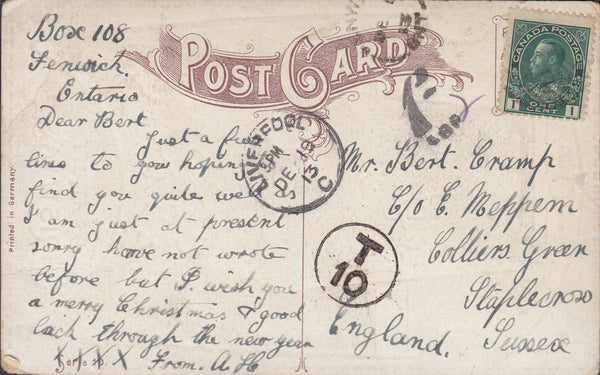 Box 108
Fenwick.
Ontario
Dear Bert
Just a few
lines to you hoping
find you quite well
I am just at present
sorry have not wrote
before but I wish you
a merry Christmas & good
luck through the new year
X X X X From. A H
POST CARD
Printed in Germany
Serie 20.
LIVERPOOL
5 PM
DE 19
13
C
T
10
CANADA POSTAGE
1 ONE CENT 1
Mr. Bert. Cramp
C/o E. Meppem
Colliers Green
Staplecross
Sussex
England.